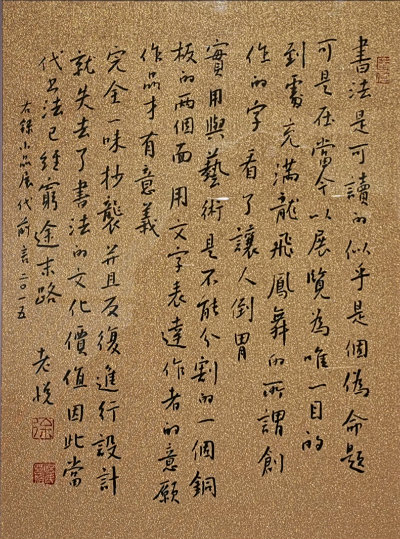 書法是可讀的似乎是個偽命題
可是在當今以展覽為唯一目的
到處充滿龍飛鳳舞的所謂創
作的字看了讓人倒胃
實用與藝術是不能分割的一個銅
板的兩個面用文字表達作者的意願
作品才有意義
完全一味抄襲並且反復進行設計
就失去了書法的文化價值因此當
代書法已經窮途末路
右錄小品展代前言二〇一五
老悅